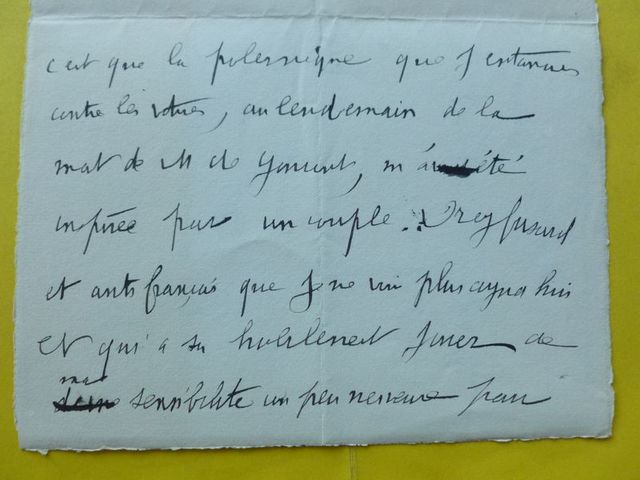 c'est que la polemique que j'entamais
contre les votres, au lendemain de la
mort de M de Goncourt, m'a été
inspirée par un couple Dreyfusard
et antifrançais que je ne vois plus aujourd'hui
et qui a su habilement jouer de
ma sensibilité un peu nerveuse pour